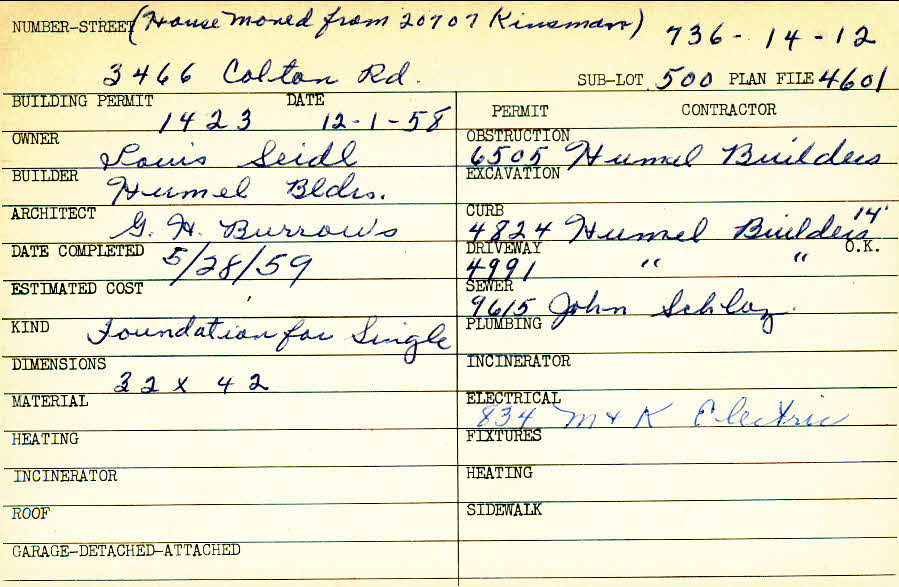 NUMBER-STREET (House Moved from 20707 Kinsman) 736-14-12
3466 Colton Rd. SUB-LOT 500 PLAN FILE 4601
BUILDING PERMIT DATE
1423 12-1-58
OWNER
Louis Seidl
BUILDER
Humel Bldrs.
ARCHITECT
G. H. Burrows
DATE COMPLETED 5/28/59
ESTIMATED COST
KIND Foundation for Single
DIMENSIONS
32 x 42
MATERIAL
HEATING
INCINERATOR
ROOF
GARAGE-DETACHED-ATTACHED
PERMIT CONTRACTOR
OBSTRUCTION
6505 Humel Builders
EXCAVATION
CURB 14'
4824 Humel Builders
DRIVEWAY O.K.
4991 " "
SEWER
9615 John Schloz
PLUMBING
INCINERATOR
ELECTRICAL
834 M & K Electric
FIXTURES
HEATING
SIDEWALK